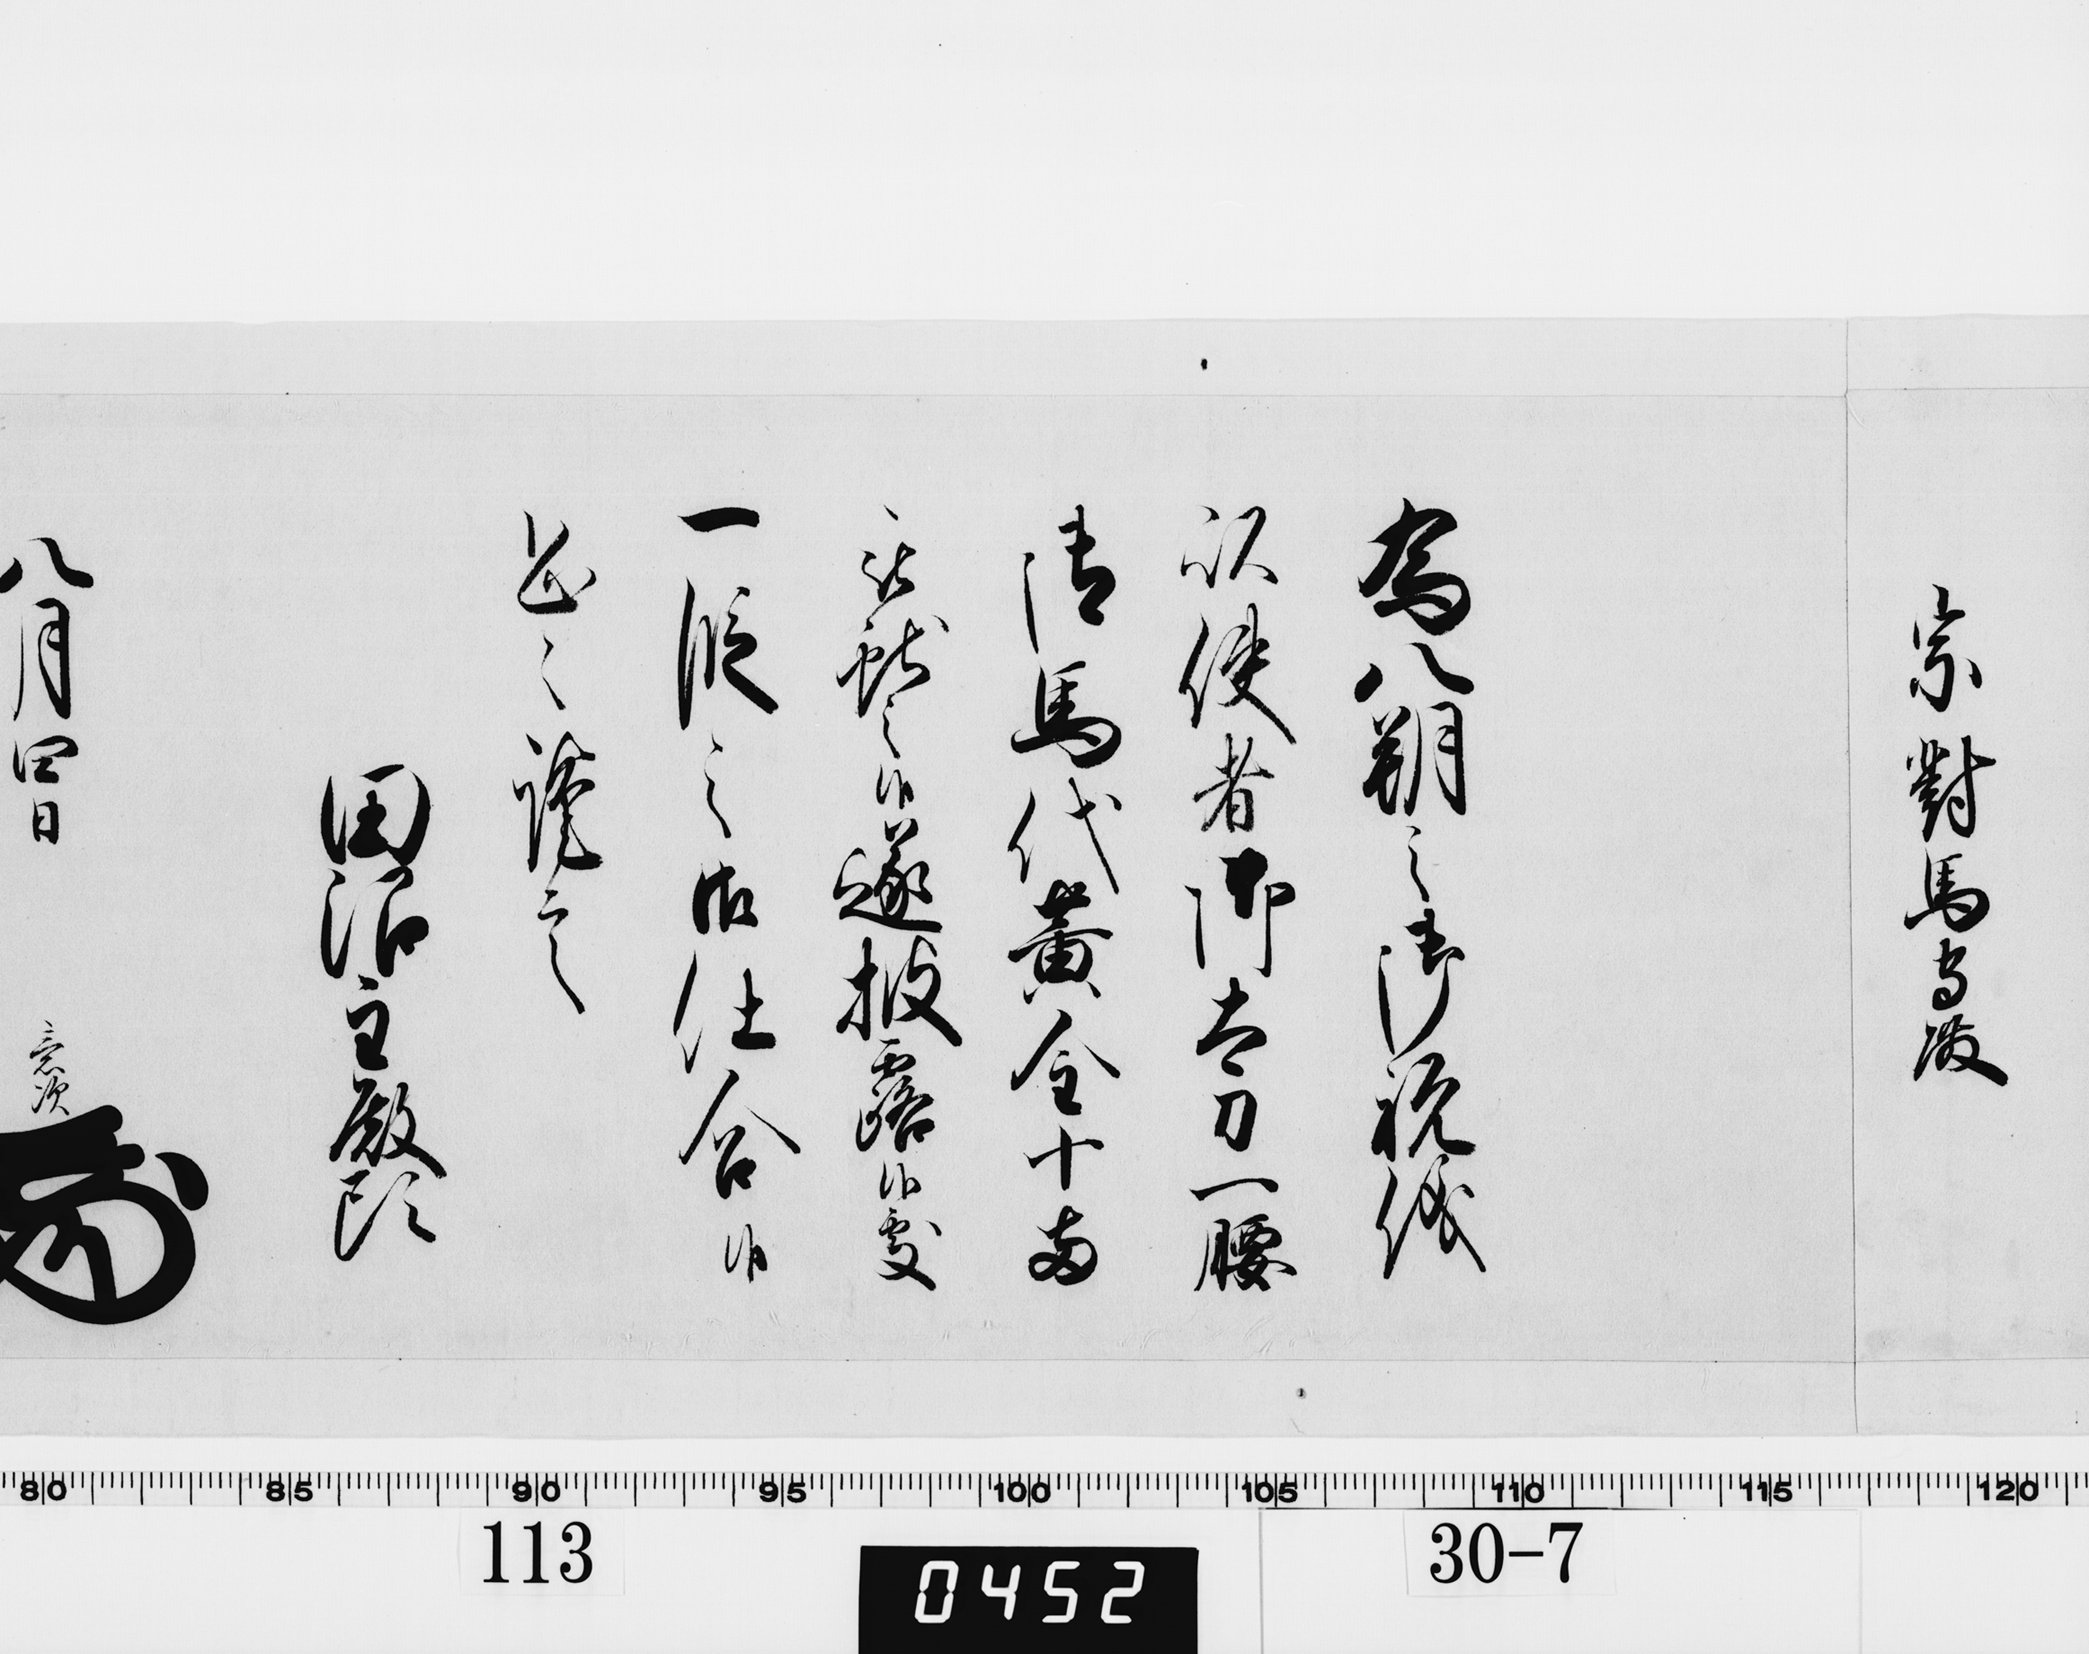 宗對馬守殿
為八朔之御祝儀
以使者御太刀一腰
御馬代黄金十両
被獻之候遂披露候處
一段之御仕合候
恐々謹言
田沼主殿頭
八月四日
意次
80 85 90 95 100 105 110 115 120
113
0452
30-7